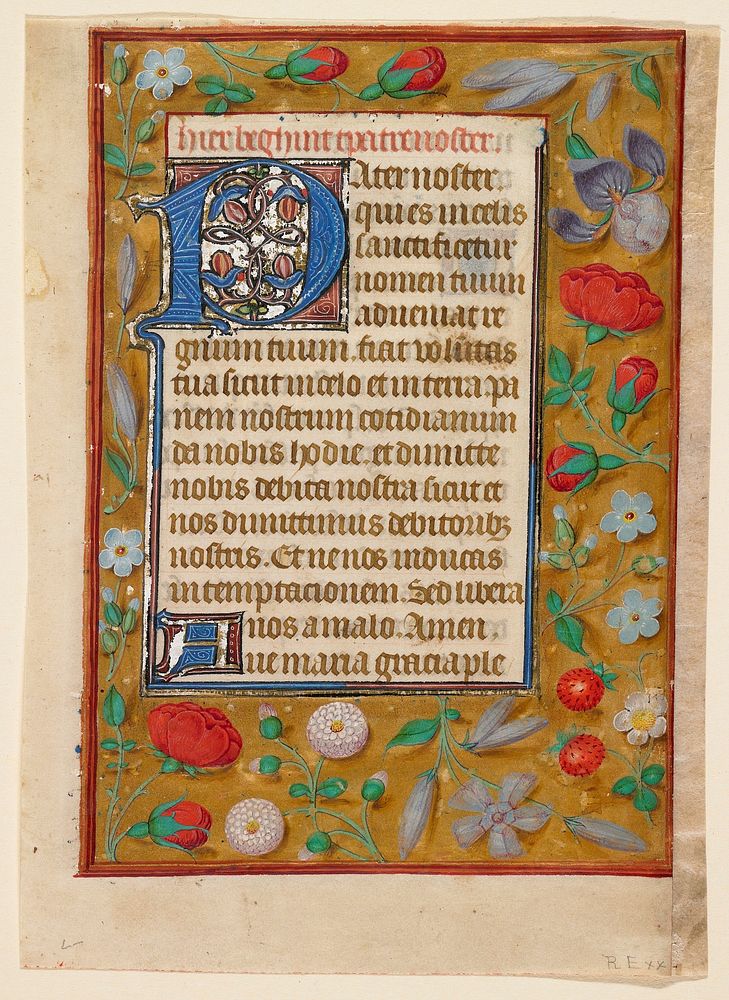 hier beghint tpatrenoster.
Pater noster
qui es in celis
sanctificetur
nomen tuum
adveniat re
gnum tuum. fiat voluntas
tua sicut in celo et in terra. pa
nem nostrum cotidianum
da nobis hodie. et dimitte
nobis debita nostra sicut et
nos dimittimus debitoribꝫ
nostris. Et ne nos inducas
in temptacionem. Sed libera
nos a malo. Amen.
Ave maria gracia ple
R E xx